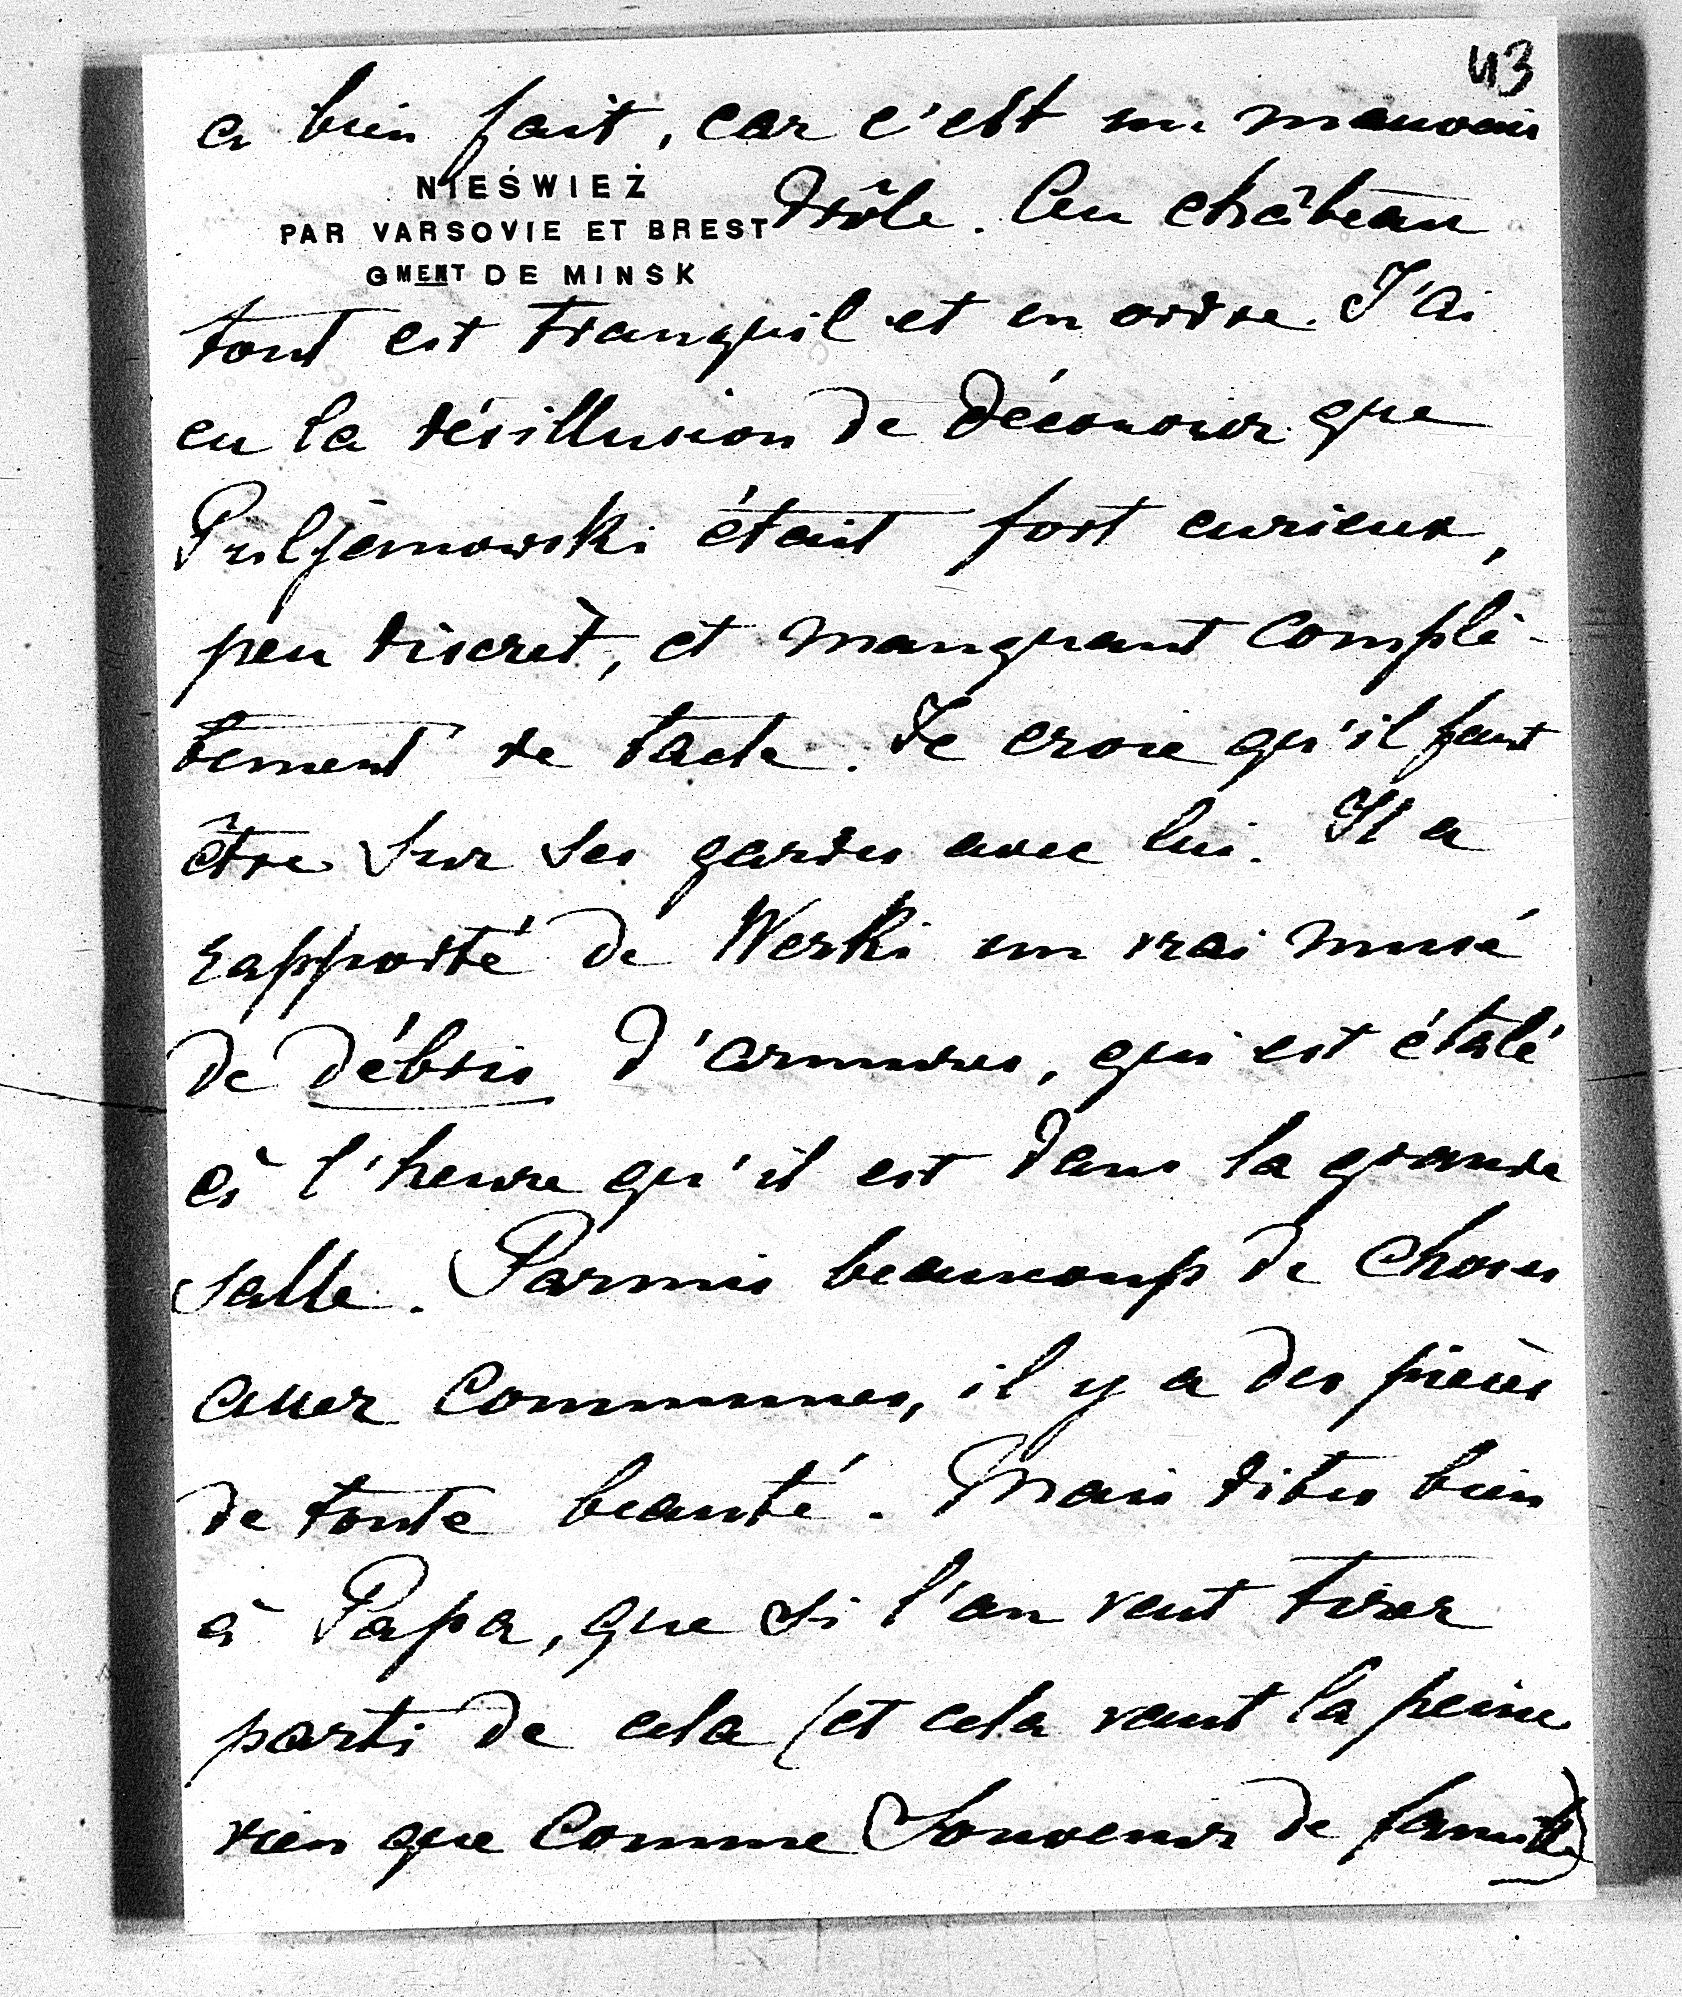 43
a bien fait, car c'est un mauvais
NIEŚWIEŻ
PAR VARSOVIE ET BREST
GMENT DE MINSK
drôle. Au château
tout est tranquil et en ordre. J'ai
eu la désillusion de découvrir que
était fort curieux,
peu discrèt, et manquant complè-
tement de tacte. Je crois qu'il faut
être sur ses gardes avec lui. Il a
rapporté de Werki un vrai musé
de débris d'armures, qui est étalé
à l'heure qu'il est dans la grande
salle. Parmis beaucoup de choses
assez communes, il y a des pièces
de toute beauté. Mais dites bien
à Papa, que si l'on veut tirer
parti de cela (et cela vaut la peine
rien que comme souvenir de famille)